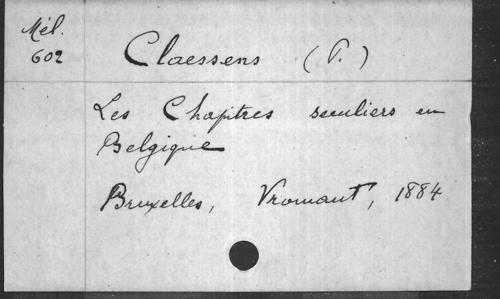 Mél.
602
Claessens (P.)
Les Chapitres seculiers en
Belgique
Bruxelles, Vromant, 1884